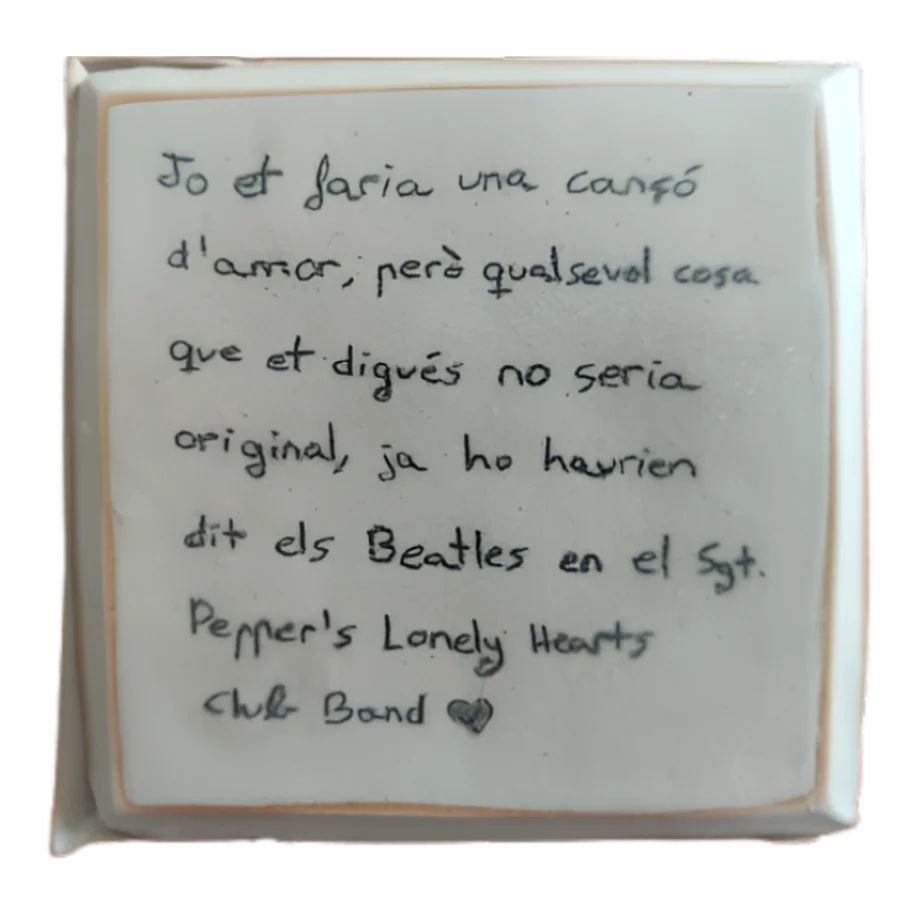 Jo et faria una cançó
d'amor, però qualsevol cosa
que et digués no seria
original, ja ho haurien
dit els Beatles en el Sgt.
Pepper's Lonely Hearts
Club Band ♥